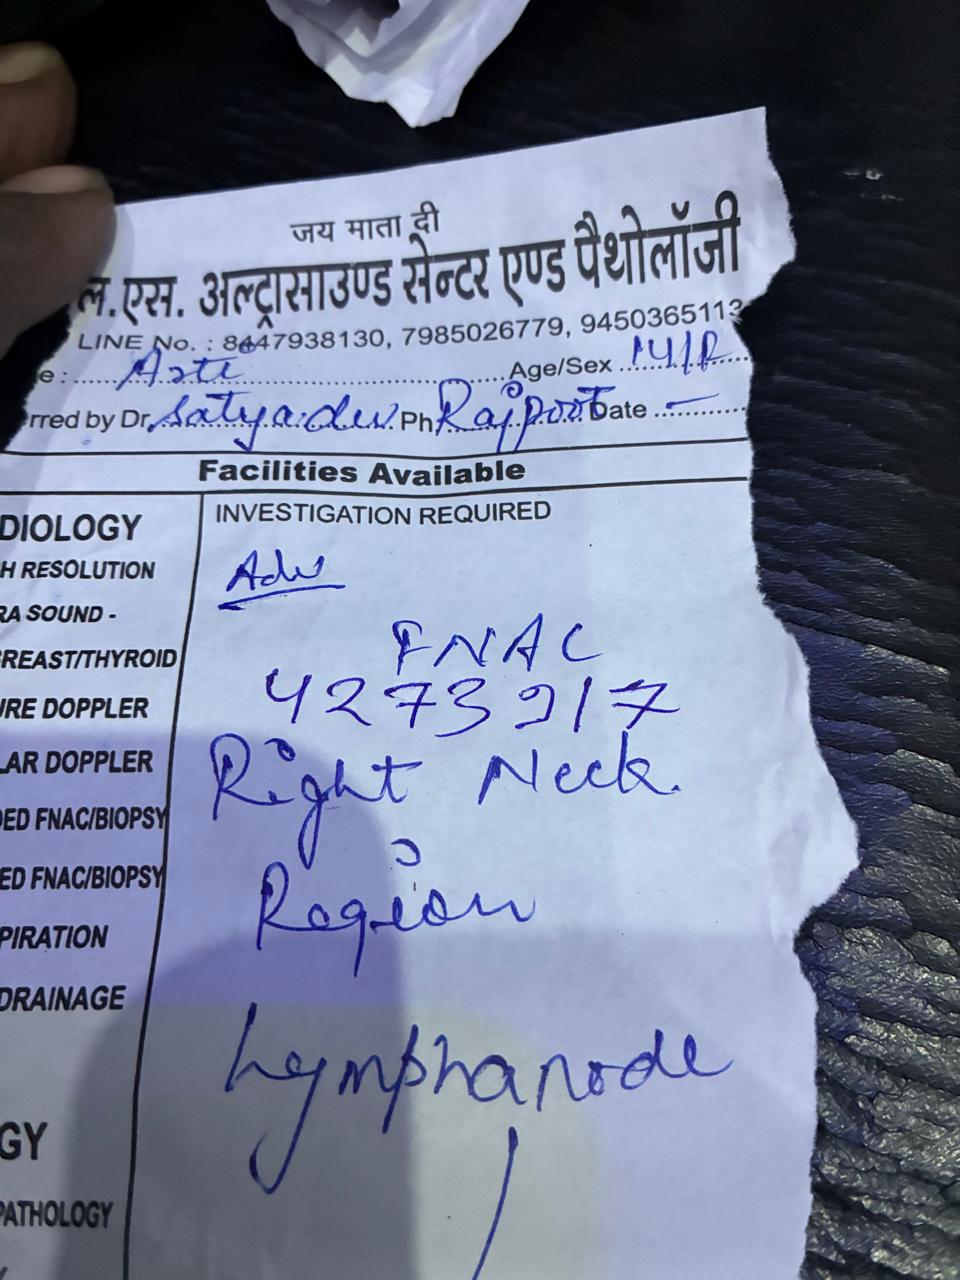 जय माता दी
ल.एस. अल्ट्रासाउण्ड सेन्टर एण्ड पैथोलॉजी
LINE No. : 8447938130, 7985026779, 9450365113
e : Arti Age/Sex 14/F
rred by Dr. Satyadev Ph. Rajpoot Date —
Facilities Available
DIOLOGY
H RESOLUTION
RA SOUND -
REAST/THYROID
URE DOPPLER
LAR DOPPLER
DED FNAC/BIOPSY
ED FNAC/BIOPSY
PIRATION
DRAINAGE
GY
PATHOLOGY
INVESTIGATION REQUIRED
Adv
FNAC
4273917
Right Neck.
Region
Lymphanode